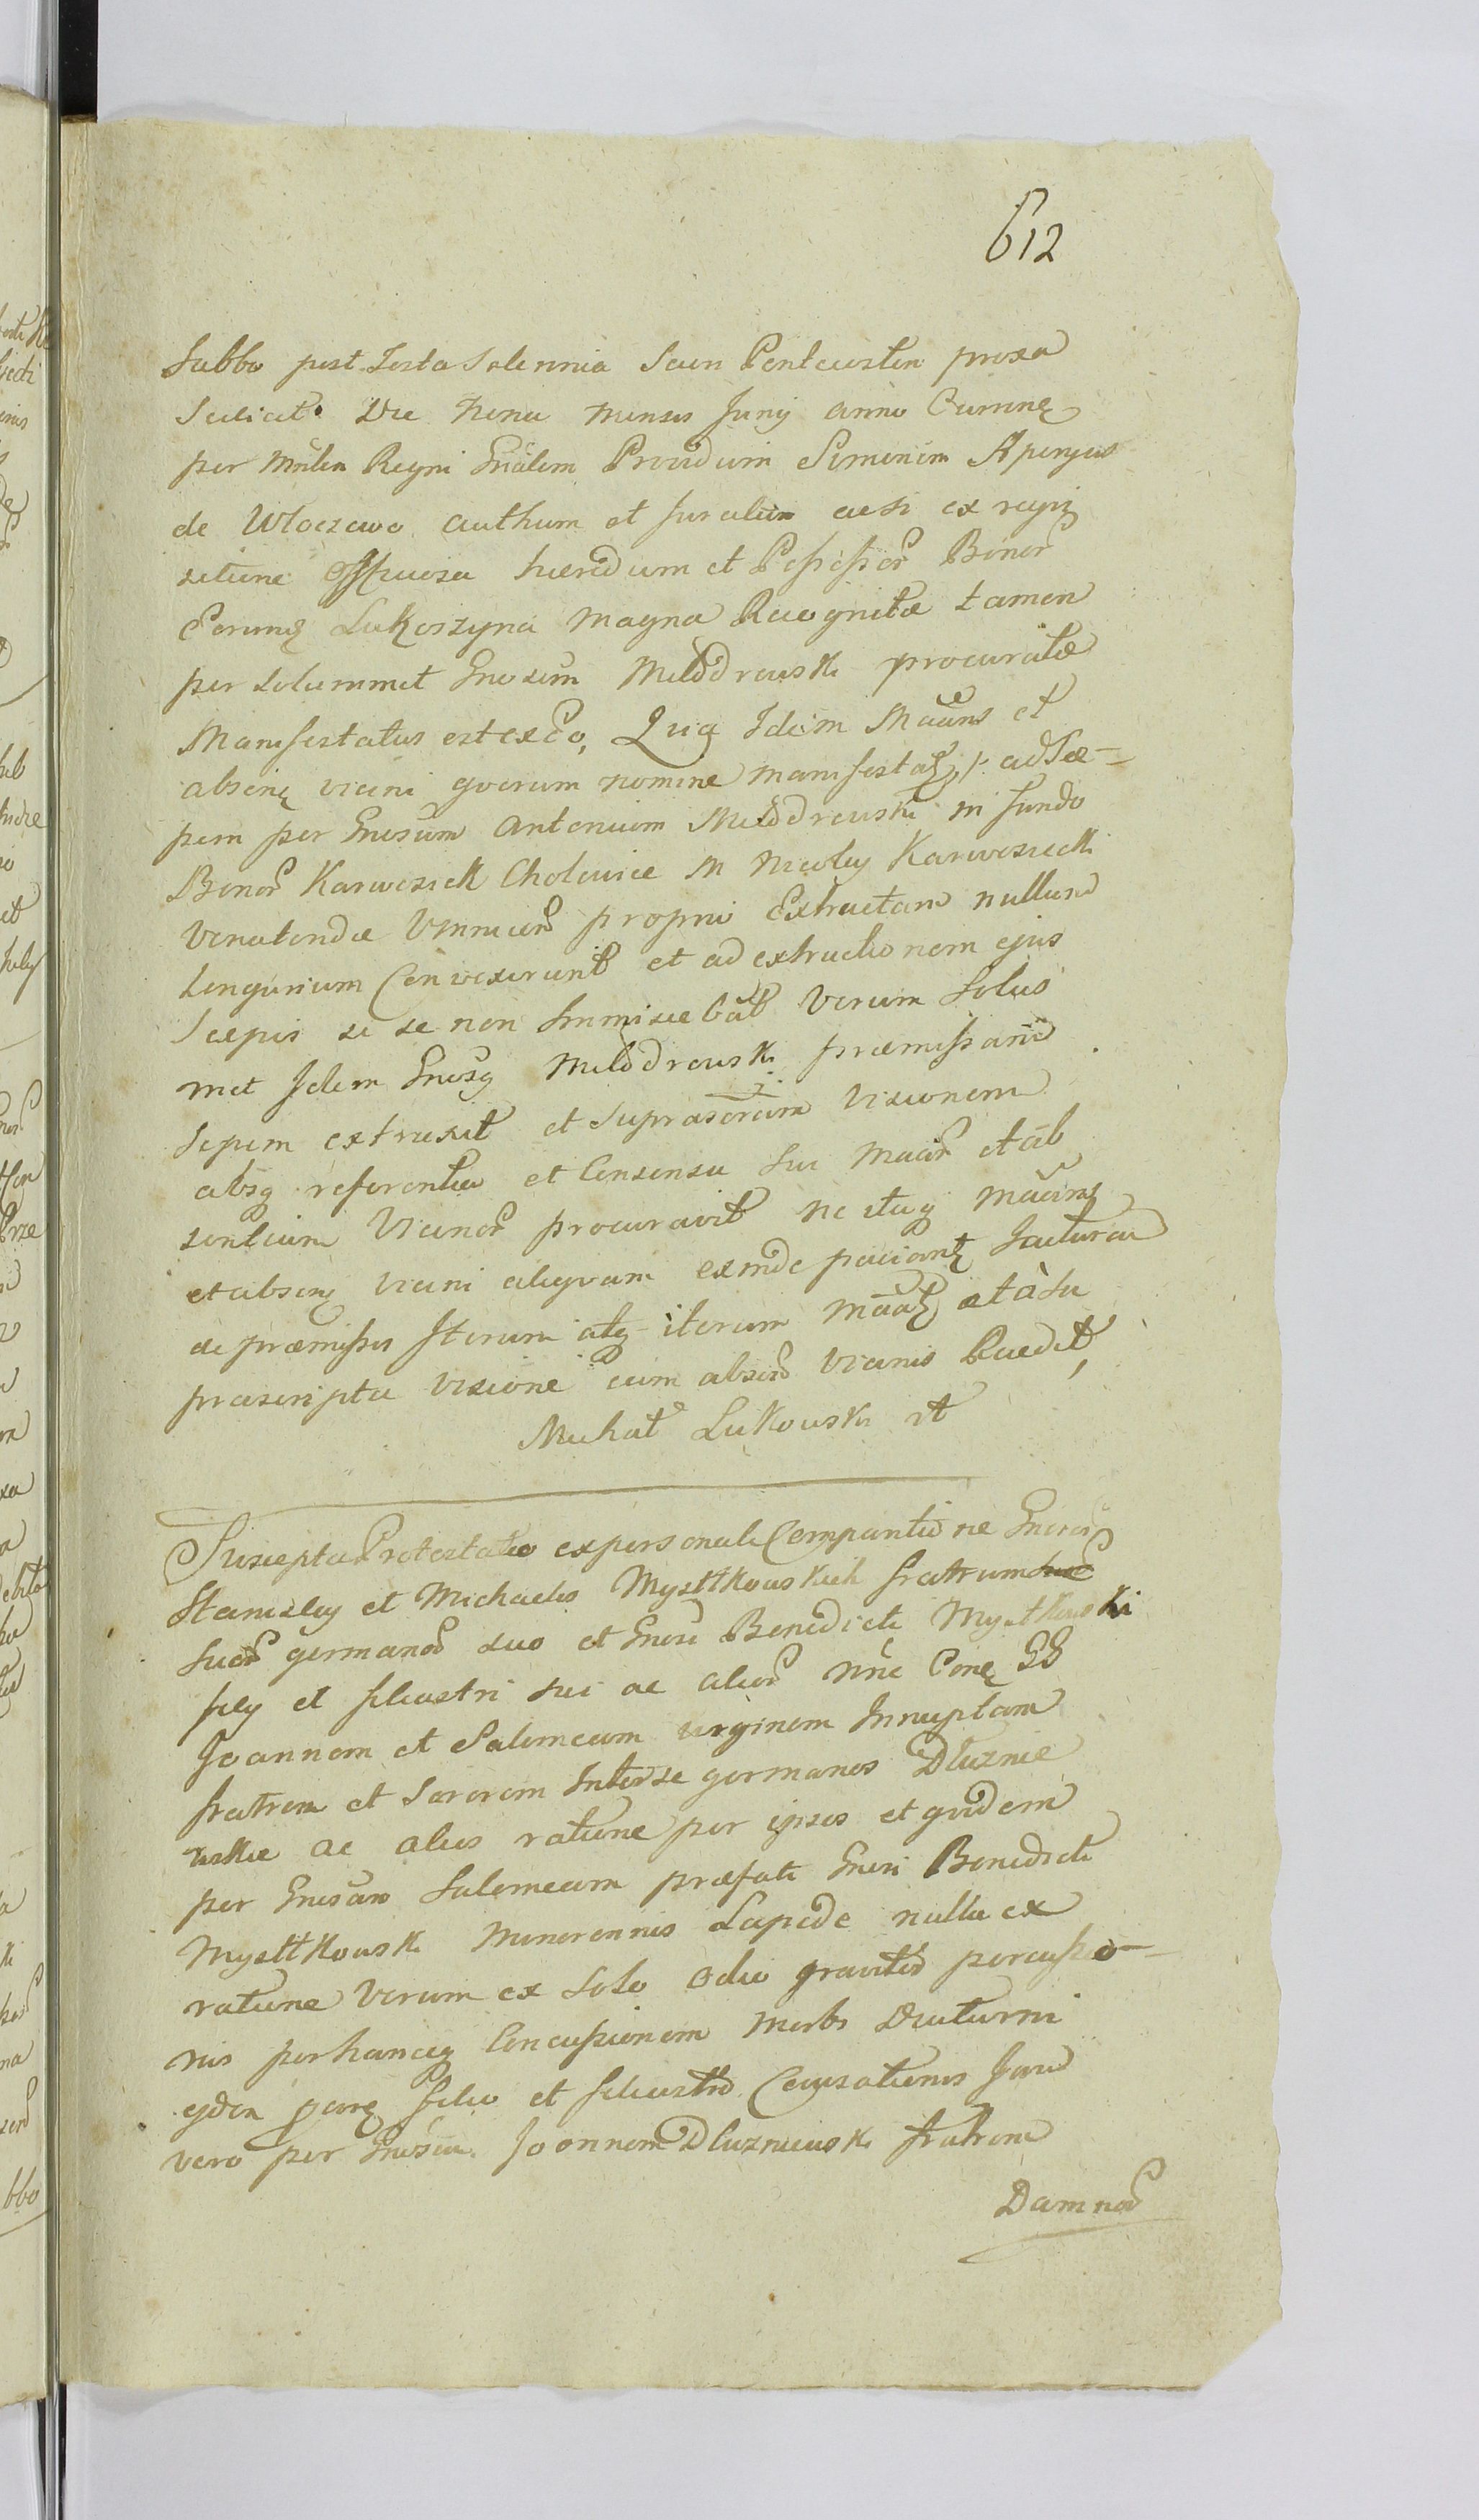 612
Sabbo post Festa Solennia Sacn Pentecosten proxa
Scilicet Die Nona Mensis Junij anno Currenę
per Mnlem Regni Gnälem Providum Simonem
de Włoczewo authum et juralum acsi ex reqvi
sitione hæredum et Poßeßor Bonor
eorumę Lukoszyna Magna Recognitæ tamen
per solummet Gnosum Młodzdrowski procuratæ
Manifestatus est ex eo, Quia Idem Maäns et
absenę vicini qvorum nomine manifestaʒ /: ad Sæ-
pem per Gnosum Antonium Młodrowski in fundo
Bonor Karwosieck Cholewice in
Venatendæ proprii Extructam nullum
Lengurium Convexerunt et ad extructionem ejus
Sæpis se se non Immiscebāt Verum Solus
met Idem Gnosq Młodrowski præmißam
Sepem extruxit et Suprascrcūm Visionem
absq referentia et Consensu Sui Maān et ab
sentium Vicinor procuravit ne itaq Māāns
et absenę Vicini aliqvam exinde Jacturam
de præmißis Iterum atq iterum Māāʒ et à Su
prascripta Visione cum absen Vicinis Recedit,
Michał Lukowski
Suscepta Protestatio ex personali Comparitione Gnoror
Stanislaj et Michaelis Mysttkowskich fratrum
Suor germanor suo et Gnosi Benedicti Mysttkowski
filij et filiastri sui ac alior nōīe Conę GG
Joannem et Salomeam virginem Innuptam
fratrem et Sororem Inter se germanos Dłuznie
wskie ac alios ratione per ipsos et qvidem
per Gnosam Salomeam præfati Gnosi Benedicti
Mysttkowski Minorennis Lapide nulla ex
ratione Verum ex Solo odio graviter percußio-
nis per hancę Concußionem Morbi Diuturni
ejdem filio et filiastro Causationis Jam
vero per Gnosum Joannem Dłuzniewski fratrem
Damnor